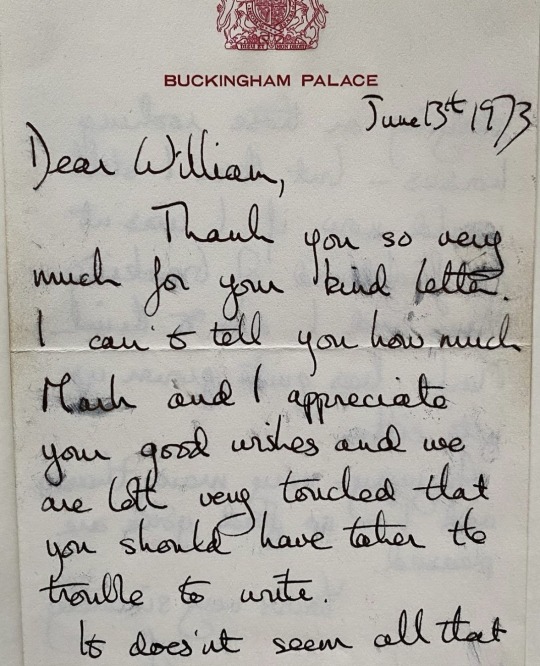 BUCKINGHAM PALACE
June 13th 1973
Dear William,
Thank you so very
much for your kind letter.
I can't tell you how much
Mark and I appreciate
your good wishes and we
are both very touched that
you should have taken the
trouble to write.
It does'nt seem all that